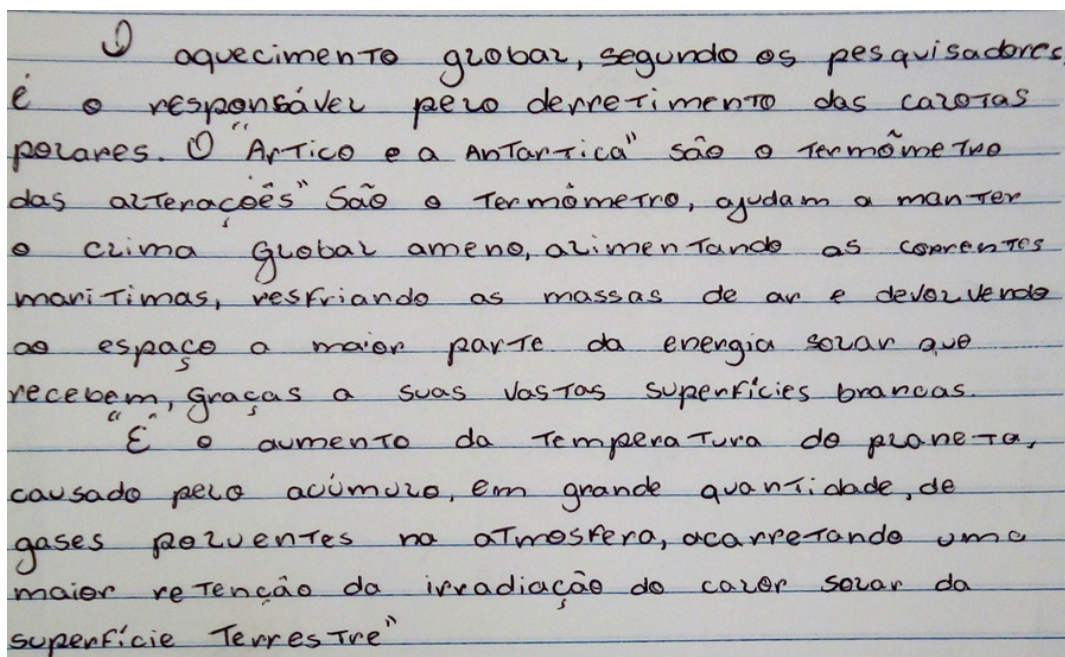 O aquecimento global, segundo os pesquisadores,
é o responsável pelo derretimento das calotas
polares. O "Artico e a Antartica" são o termômetro
das alterações" São o termômetro, ajudam a manter
o clima global ameno, alimentando as correntes
maritimas, resfriando as massas de ar e devolvendo
ao espaço a maior parte da energia solar que
recebem, graças a suas vastas superfícies brancas.
"É o aumento da temperatura do planeta,
causado pelo acúmulo, em grande quantidade, de
gases poluentes na atmosfera, acarretando uma
maior retenção da irradiação do calor solar da
superfície terrestre"